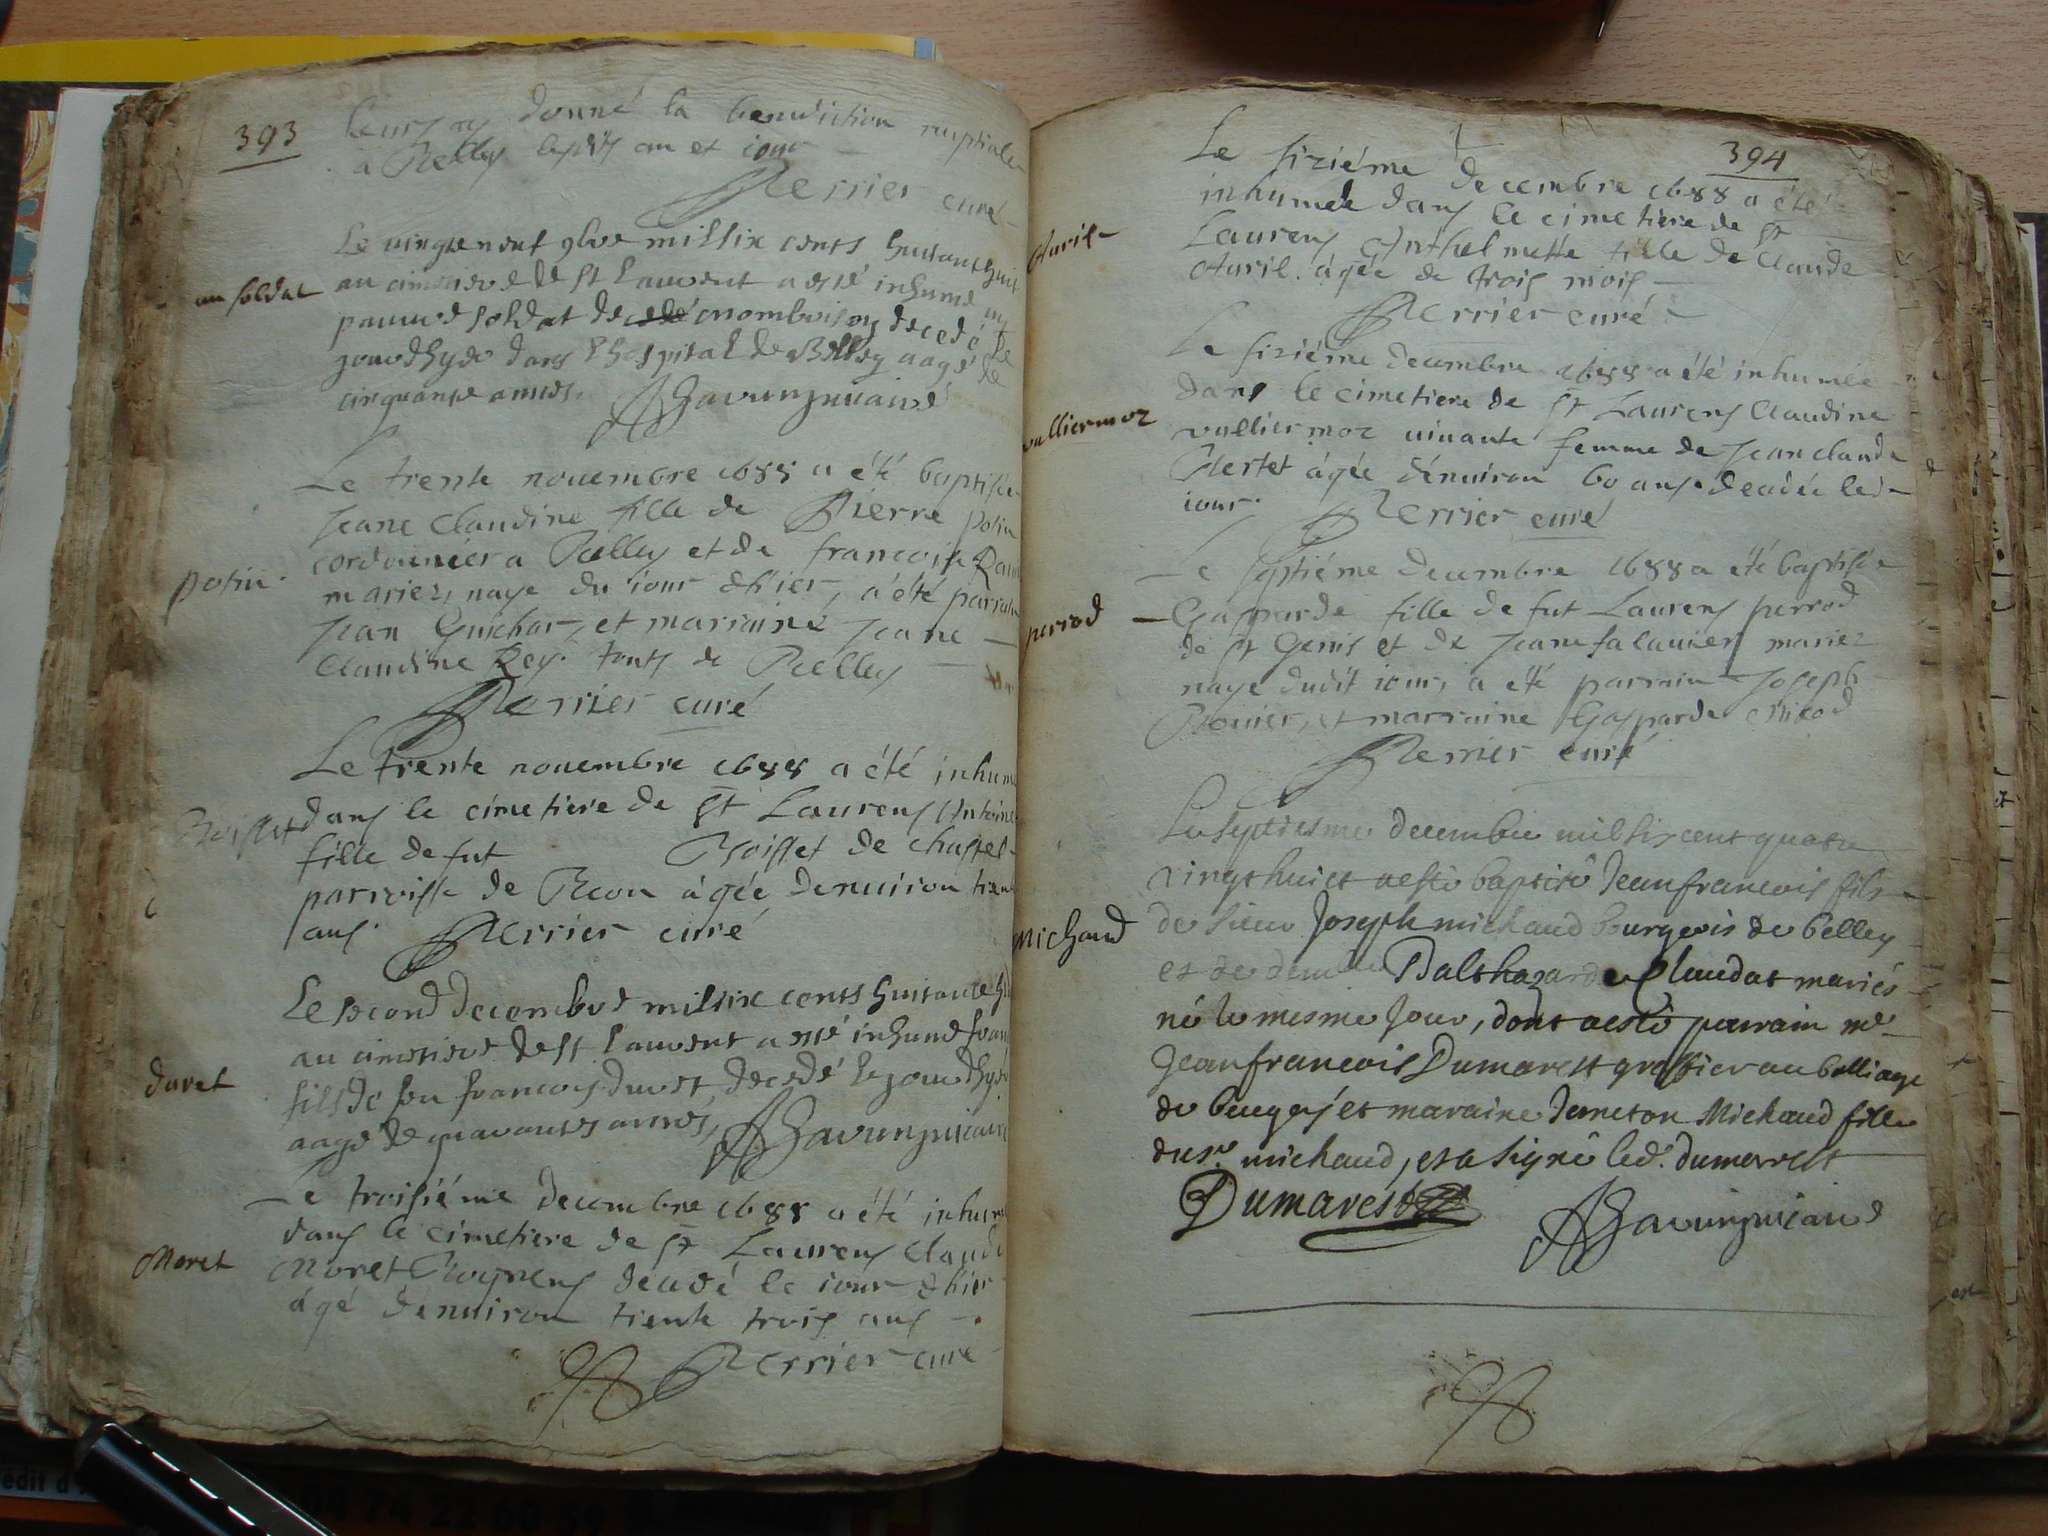 393
leur ay donné la benediction nuptiale
à Belley lesdits an et iour
Perrier curé
un soldat
Le vingt neuf 9bre mil six cents huitante huit
au cimetiere de St Laurent a esté inhumé un
pauvre soldat de decedé le
jourdhyer dans l'hospital de Belley aagé de
cinquante annés.
Le trente nouembre 1688 a été baptisée
Jeane Claudine fille de Pierre potin
potin
cordonnier a Belley et de francoise
mariez, naye du iour d'hier, a été parrain
Jean Guichar, et marraine Jeane
Claudine Rey. touts de Belley
Perrier curé
Le trente nouembre 1688 a été inhumé
dans le cimetiere de St Laurens Antoine
fille de fut Boisset de chastel
parroisse de agée denuiron trente
ans. Perrier curé
Le second decembre mil six cents huitante
au cimetiere de St Laurent a esté inhumé
duret
fils de feu francois duret decedé le jourdhyer
aagé de quarantes annés,
Le troisiéme decembre 1688 a été inhumé
dans le cimetiere de St Laurens Claude
Moret
Moret decedé le iour d'hier
ágé d'enuiron trente trois ans
Perrier curé
394
Le siziéme decembre 1688 a été
inhumée dans le cimetiere de St
Auril
Laurens Anthelmette fille de Claude
Auril. ágée de trois mois
Perrier curé
Le siziéme decembre 1688 a été inhumée
dans le cimetiere de St Laurens Claudine
vulliermoz
vulliermoz uiuante femme de Jean claude
Hertet ágée d'enuiron 60 ans decedée led
iour. Perrier curé
Le septiéme decembre 1688 a été baptisée
Gasparde fille de fut Laurens perrod
perrod
de St Genis et de Jeane mariez
naye dudit iour, a été parrain Joseph
et marraine Gasparde
Perrier curé
Le septiesme decembre mil six cent quatre
vingt huict a esté baptisé Jean francois fils
Michaud
de sieur Joseph michaud bourgeois de belley
et de Balthazarde Claudat mariés
né le mesme Jour, dont a esté parrain me
Jean francois Dumarest greffier au balliage
de beugey et maraine Jeneton Michaud fille
du sr. michaud, et a signé led. dumarest
Dumarest